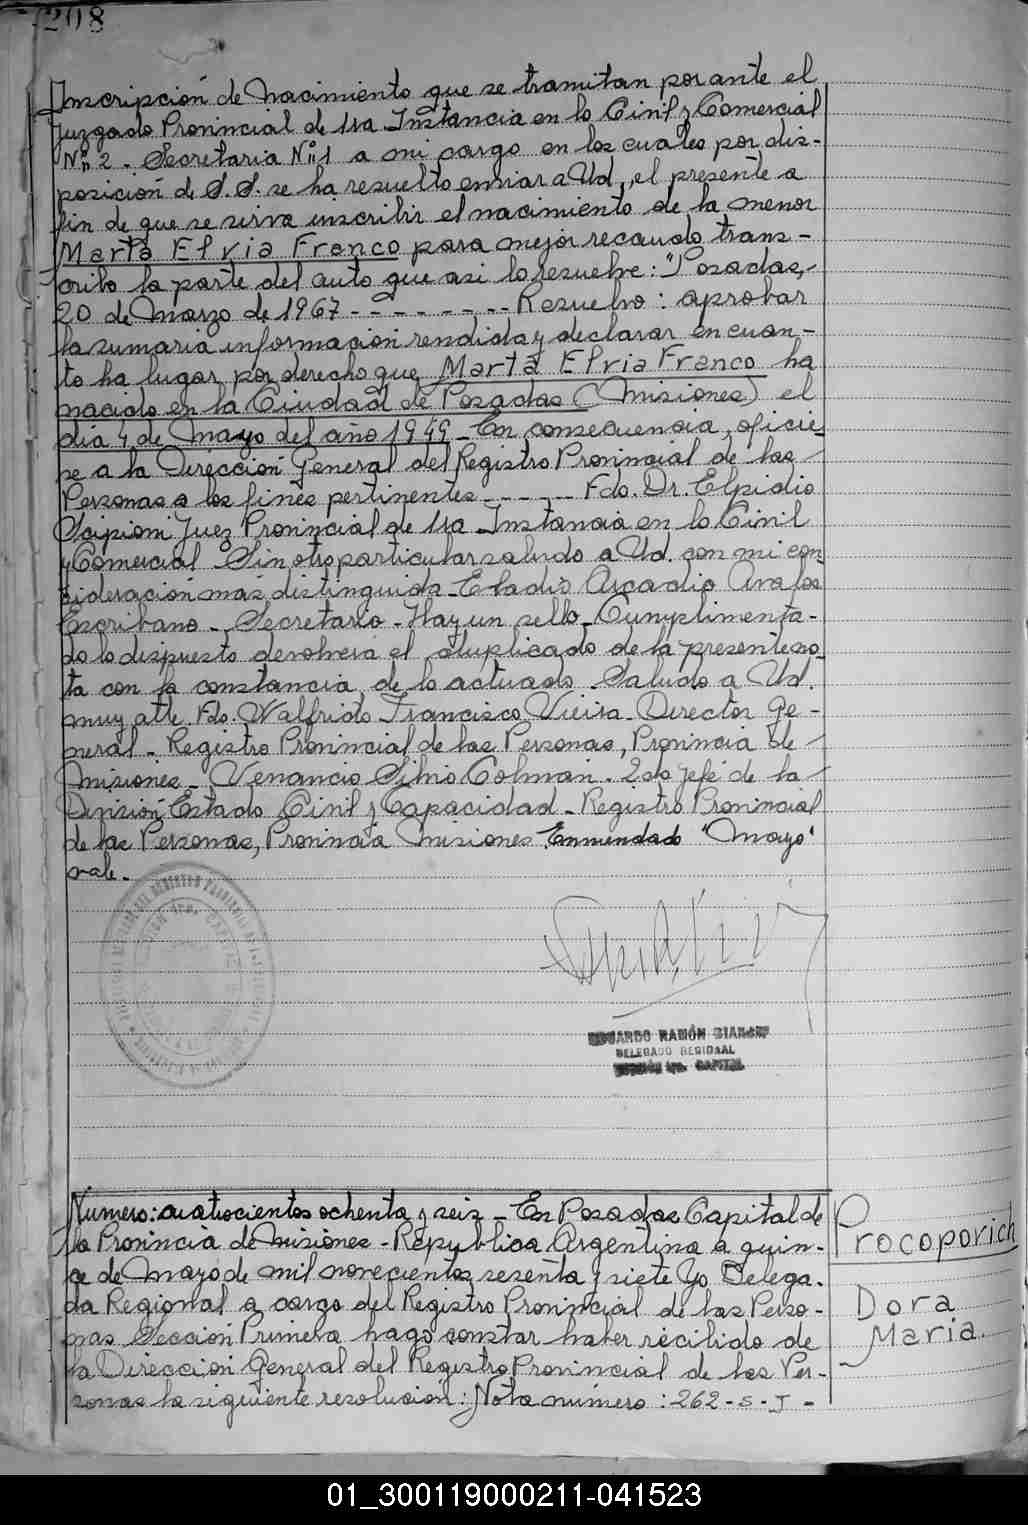 208
Inscripción de Nacimiento que se tramitan por ante el
Juzgado Provincial de 1ra Instancia en lo Civil y Comercial
Nº 2 - Secretaria Nº 1 a mi cargo en los cuales por dis-
posición de S. S. se ha resuelto enviar a Ud, el presente a
fin de que se sirva inscribir el nacimiento de la menor
Marta Elvia Franco para mejor recaudo trans-
cribo la parte del auto que asi lo resuelve: "Posadas,-
20 de Marzo de 1967 - - - - - - - - Resuelvo: aprobar
la sumaria informacion rendida y declarar en cuan-
to ha lugar por derecho que Marta Elvia Franco ha
nacido en la Ciudad de Posadas (Misiones) el
dia 4 de Mayo del año 1949 - En consecuencia, oficie-
se a la Dirección General del Registro Provincial de las
Personas a los fines pertinentes - - - - - Fdo. Dr. Elpidio
Scipioni Juez Provincial de 1ra Instancia en lo Civil
y Comercial Sin otro particular saludo a Ud. con mi con
sideración más distinguida - Eladio Arcadio Avalos
Escribano - Secretario - Hay un sello - Cumplimenta-
do lo dispuesto devolvera el duplicado de la presente no-
ta con la constancia de lo actuado. Saludo a Ud.
muy atte. Fdo. Walfrido Francisco Vieira - Director Ge-
neral - Registro Provincial de las Personas, Provincia de
Misiones - Venancio Silvio Colman. 2do Jefe de la
División Estado Civil y Capacidad - Registro Provincial
de las Personas, Provincia Misiones Enmendado "Mayo"
vale.-
EDUARDO RAMÓN
DELEGADO REGIONAL
SECCIÓN 1ra. CAPITAL
Numero: cuatrocientos ochenta y seis - En Posadas Capital de
la Provincia de Misiones - Republica Argentina a quin-
ce de Mayo de mil novecientos sesenta y siete Yo Delega-
da Regional a cargo del Registro Provincial de las Perso-
nas Sección Primera hago constar haber recibido de
la Dirección General del Registro Provincial de las Per-
sonas la siguiente resolución: Nota número: 262-S-J -
Procoporich
Dora
Maria.
01_300119000211-041523